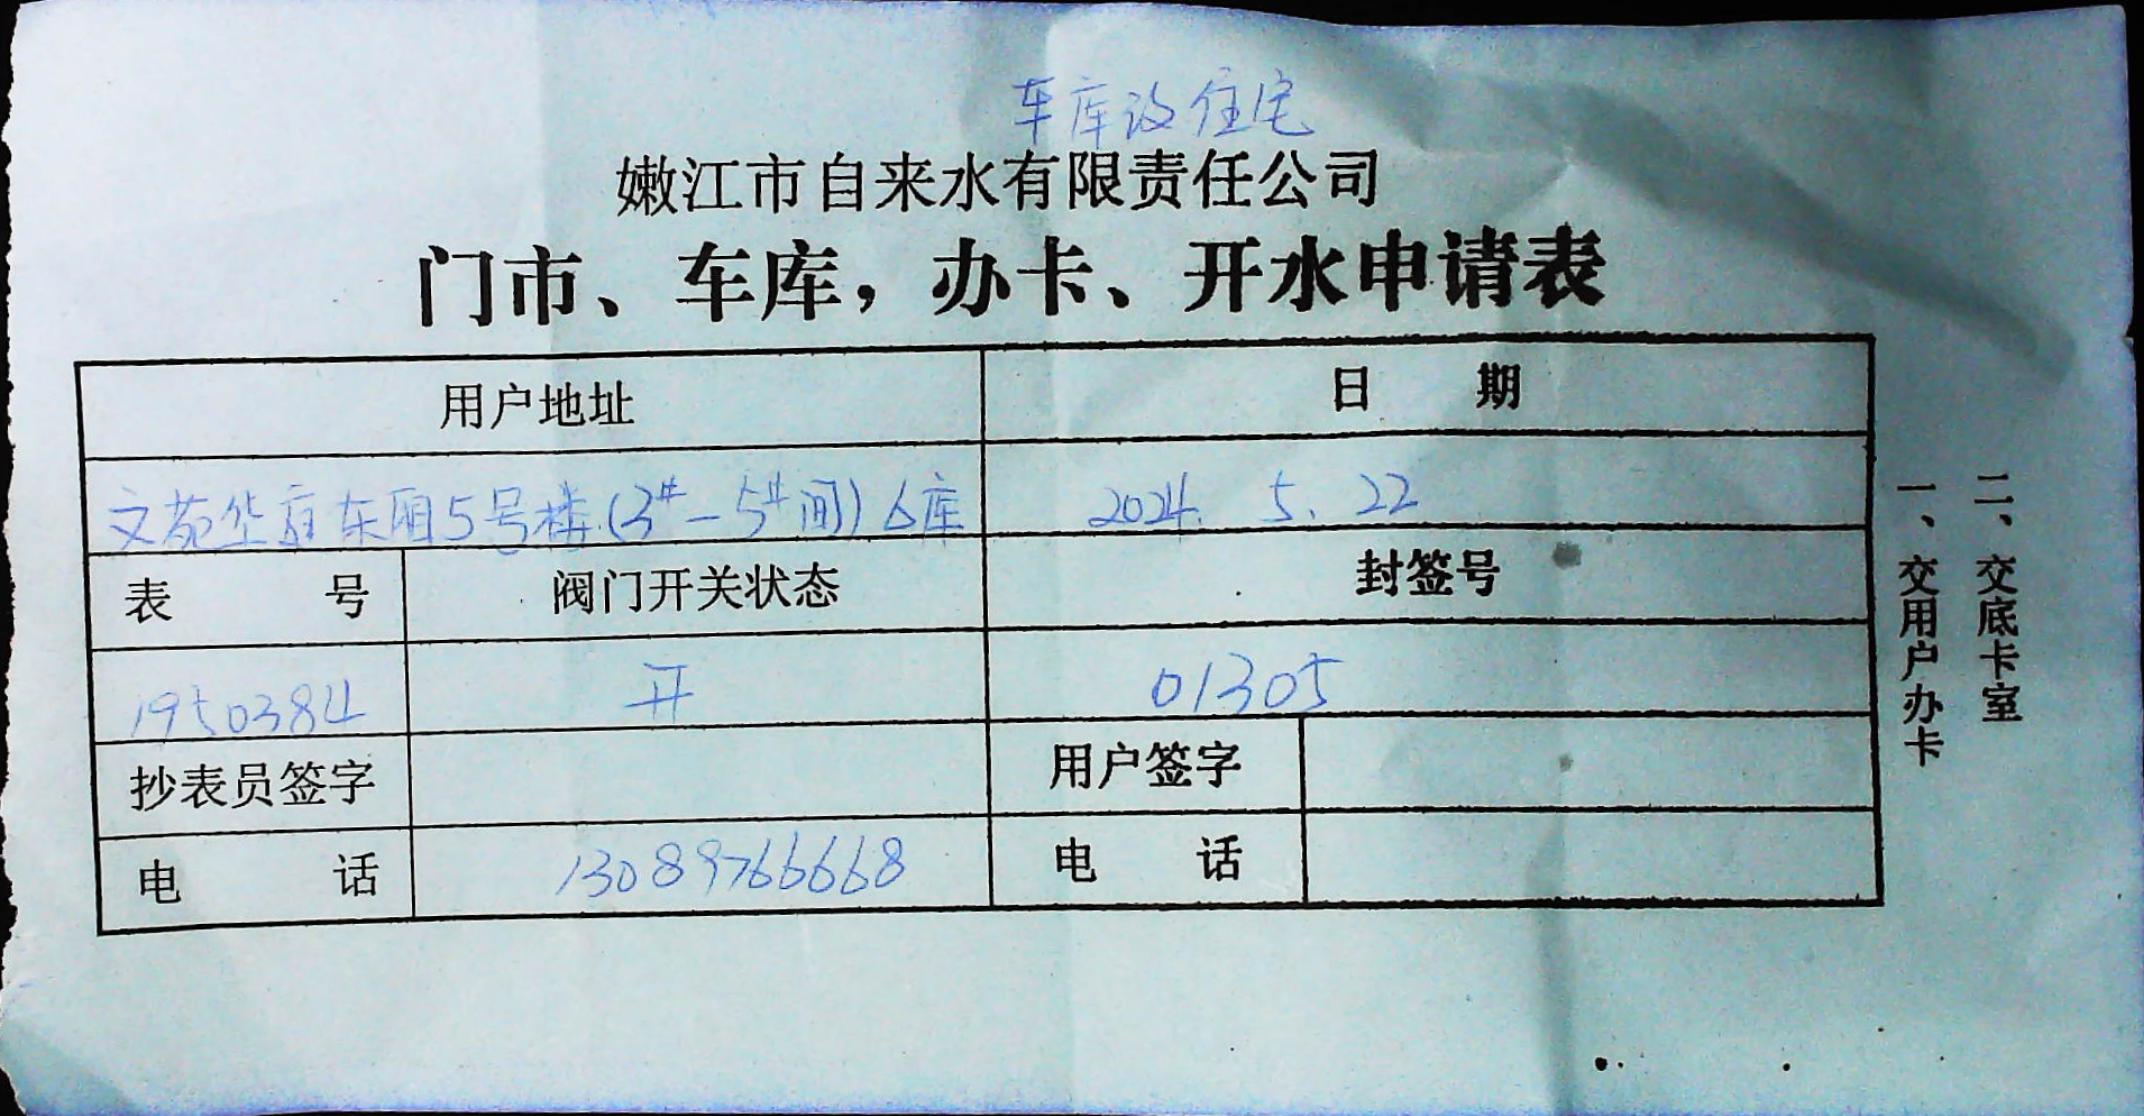 车库改住宅
嫩江市自来水有限责任公司
门市、车库，办卡、开水申请表
用户地址 日 期
文苑华府东阳5号楼(3#-5#间)6库 2024. 5. 22
表 号 阀门开关状态 封签号
1950384 开 01305
抄表员签字 用户签字
电 话 13089766668 电 话
一、交用户办卡
二、交底卡室